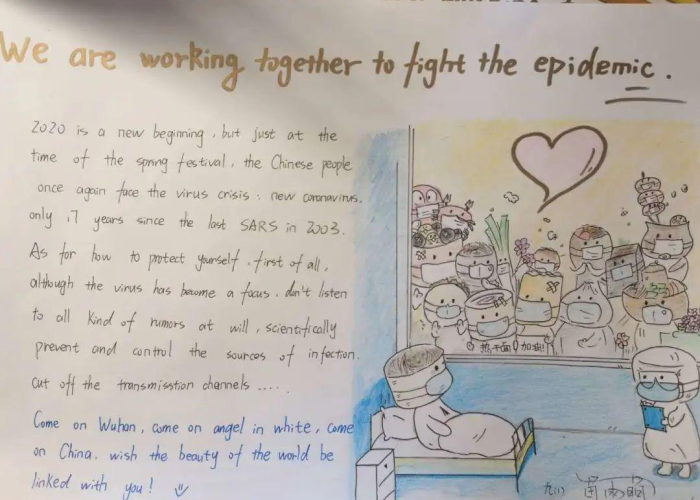 We are working together to fight the epidemic.
2020 is a new beginning, but just at the
time of the spring festival, the Chinese people
once again face the virus crisis: new coronavirus.
only 17 years since the last SARS in 2003.
As for how to protect yourself, first of all,
although the virus has become a focus, don't listen
to all kind of rumors at will, scientifically
prevent and control the sources of infection.
cut off the transmisstion channels .....
Come on Wuhan, come on angel in white, come
on China, wish the beauty of the world be
linked with you!
热干面 加油!